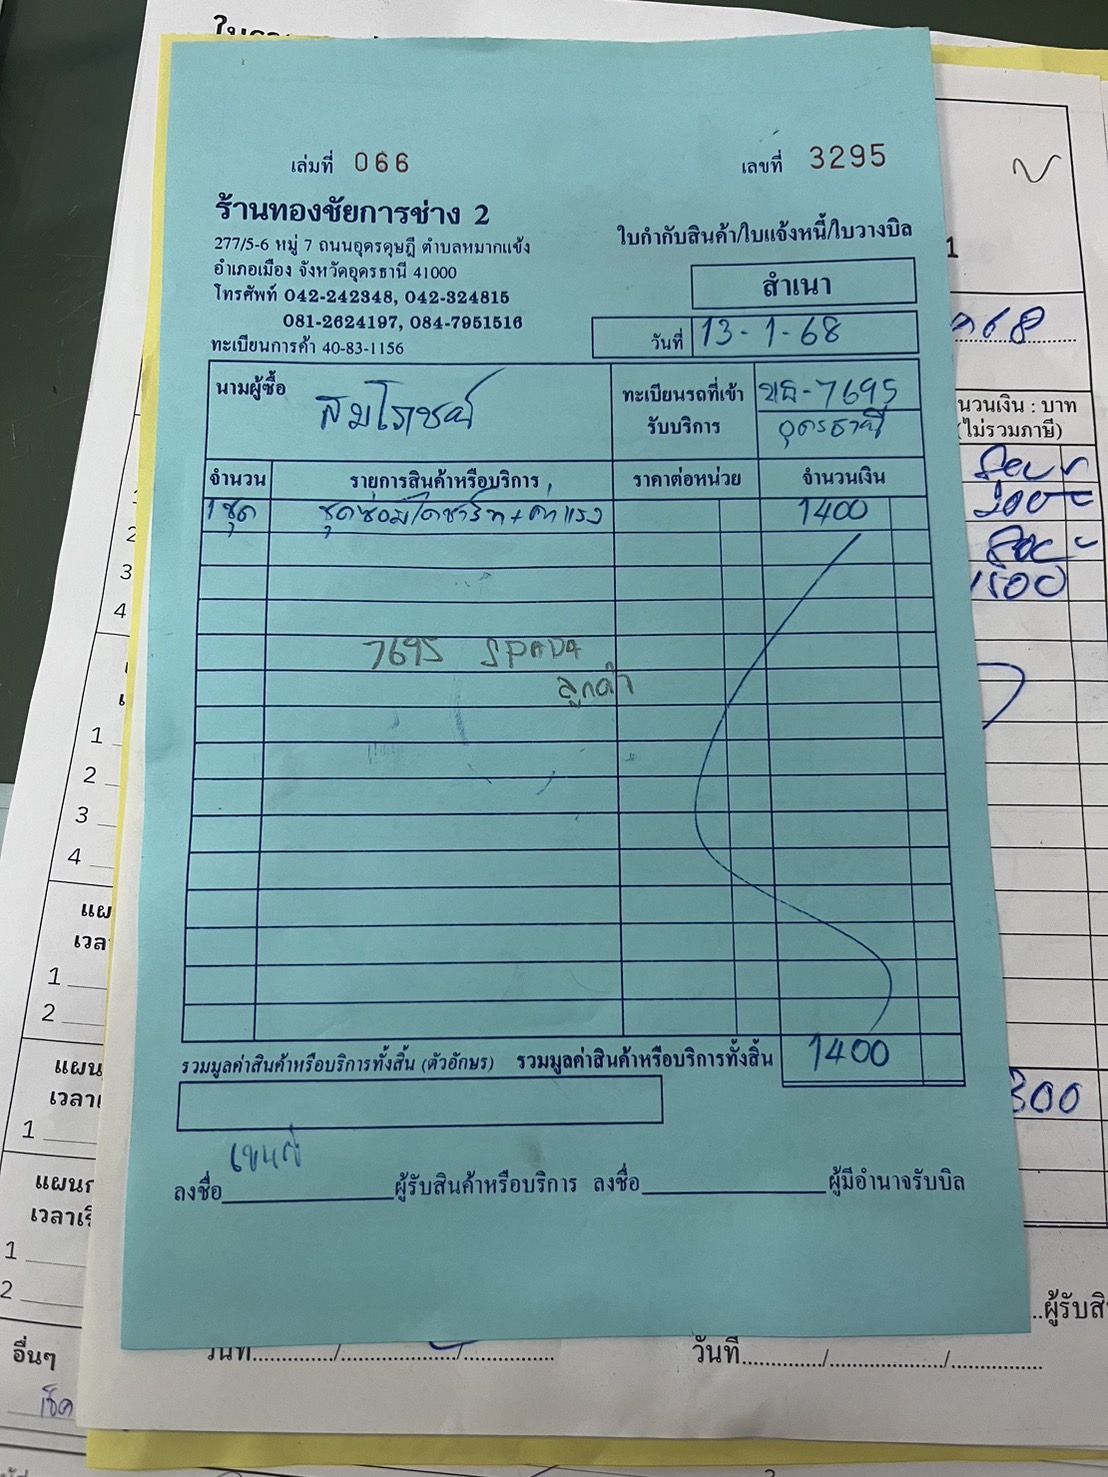 เล่มที่ 066
เลขที่ 3295
ร้านทองชัยการช่าง 2
277/5-6 หมู่ 7 ถนนอุดรดุษฎี ตำบลหมากแข้ง
อำเภอเมือง จังหวัดอุดรธานี 41000
โทรศัพท์ 042-242348, 042-324815
081-2624197, 084-7951516
ทะเบียนการค้า 40-83-1156
ใบกำกับสินค้า/ใบแจ้งหนี้/ใบวางบิล
สำเนา
วันที่ 13-1-68
นามผู้ซื้อ สมโภชน์
ทะเบียนรถที่เข้ารับบริการ 7695 อุดรธานี
จำนวน รายการสินค้าหรือบริการ ราคาต่อหน่วย จำนวนเงิน
1 ชุด ชุดซ่อมไดชาร์ท + ค่าแรง 1400
7695 SPADA
ลูกค้า
รวมมูลค่าสินค้าหรือบริการทั้งสิ้น (ตัวอักษร) รวมมูลค่าสินค้าหรือบริการทั้งสิ้น 1400
ลงชื่อ ผู้รับสินค้าหรือบริการ ลงชื่อ ผู้มีอำนาจรับบิล
จำนวนเงิน : บาท
(ไม่รวมภาษี)
1500
300
1
2
3
4
1
2
3
4
1
2
1
1
2
อื่นๆ
เช็ค
วันที่............/..................../...............
วันที่............/..................../...............